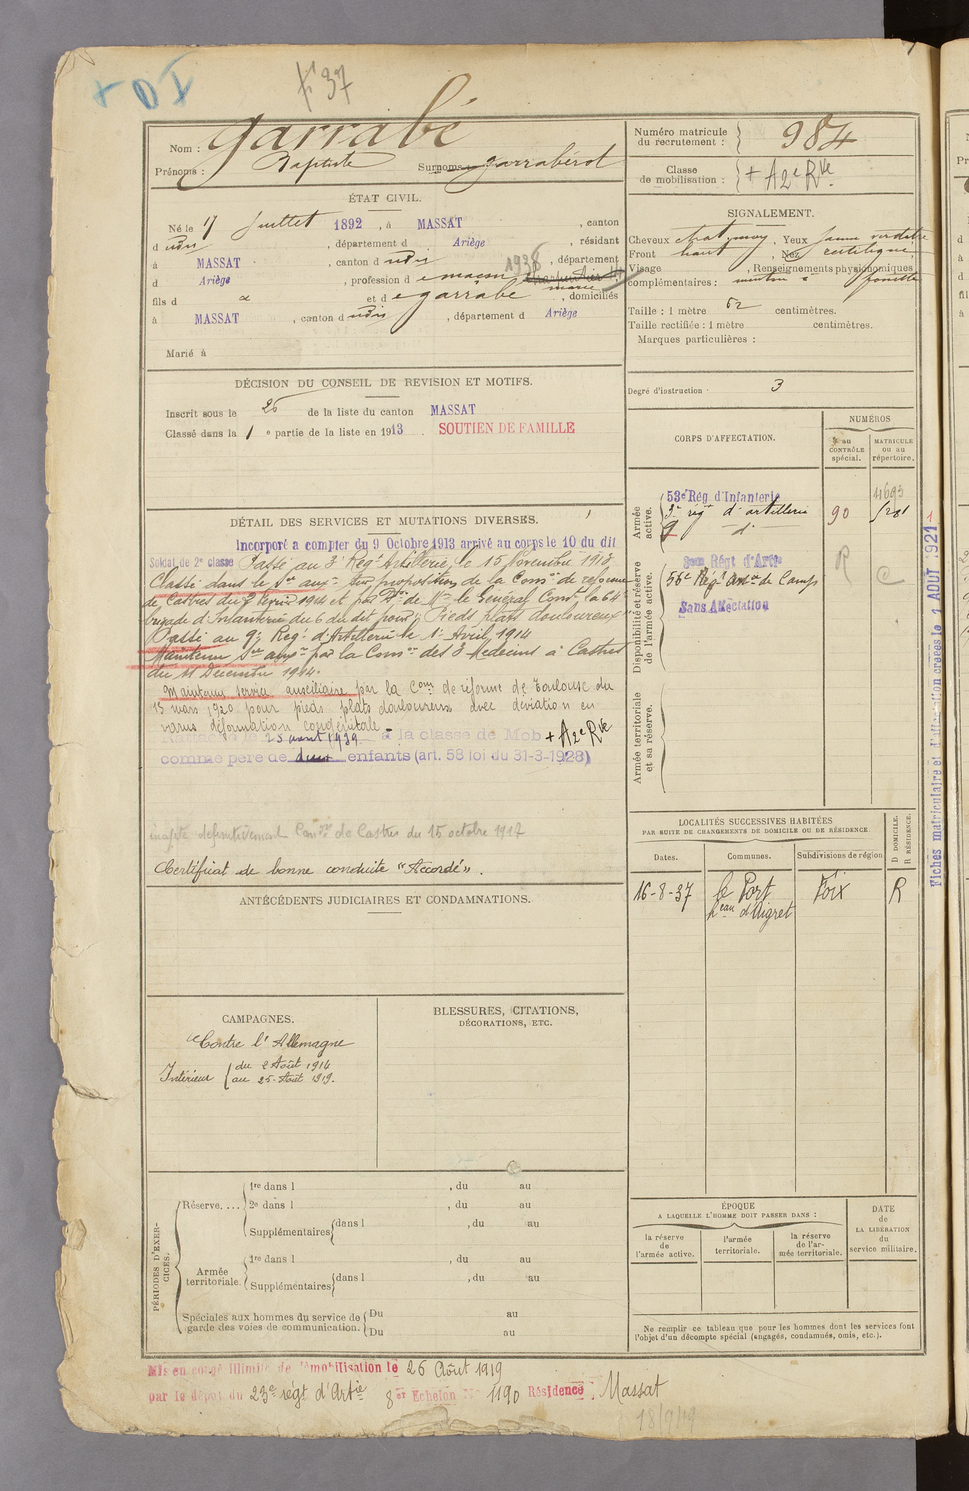 + OI
37
Nom : Garrabé
Prénoms : Baptiste Surnoms : garrabérot
Numéro matricule du recrutement : 984
Classe de mobilisation : + A2e Rve
ÉTAT CIVIL.
Né le 17 Juillet 1892, à MASSAT, canton
d udis, département d Ariège, résidant
à MASSAT, canton d udis, département
d Ariège, profession d e maçon 1938
fils d et d e garrabé marie, domiciliés
à MASSAT, canton d udis, département d Ariège
Marié à
SIGNALEMENT.
Cheveux Yeux jaune verdâtre
Front haut, Nez rectiligne
Visage, Renseignements physionomiques
complémentaires : menton à fossette
Taille : 1 mètre 62 centimètres.
Taille rectifiée : 1 mètre centimètres.
Marques particulières :
Degré d'instruction : 3
DÉCISION DU CONSEIL DE REVISION ET MOTIFS.
Inscrit sous le 26 de la liste du canton MASSAT
Classé dans la 1e partie de la liste en 1913. SOUTIEN DE FAMILLE
DÉTAIL DES SERVICES ET MUTATIONS DIVERSES.
Incorporé a compter du 9 Octobre 1913 arrivé au corps le 10 du dit
Soldat de 2e classe Passé au 3e Régt Artillerie, le 15 Novembre 1913
Classé dans le Sce auxre sur proposition de la Comson de réforme
de Castres du février 1914 et par Don de Mr le Général Comt la 64e
brigade d'Infanterie du 6 du dit pour : Pieds plats douloureux
Passé au 9e Régt d'Artillerie le 1er Avril 1914
Maintenu Sce auxre par la Comon des 3 Médecins à Castres
du 11 Décembre 1914.
Maintenu service auxiliaire par la Com de réforme de Toulouse du
15 mars 1920 pour pieds plats douloureux avec déviation en
varus déformation congénitale
25 avril 1939 à la classe de Mob + A2e Rve
comme père de deux enfants (art. 58 loi du 31-3-1928)
inapte définitivement Comon de Castres du 15 octobre 1917
Certificat de bonne conduite "Accordé".
CORPS D'AFFECTATION.
NUMÉROS
au CONTRÔLE spécial.
MATRICULE ou au répertoire.
Armée active.
53e Rég d'Infanterie 4693
3e régt d'artillerie 90
9 d°
Disponibilité et réserve de l'armée active.
Régt d'Artie
56e Régt Artie de Camp
Sans Affectation
R
Armée territoriale et sa réserve.
Fiches matriculaire et d'affectation créées le 1 AOUT 1921
LOCALITÉS SUCCESSIVES HABITÉES
PAR SUITE DE CHANGEMENTS DE DOMICILE OU DE RÉSIDENCE.
D DOMICILE.
R RÉSIDENCE.
Dates. Communes. Subdivisions de région
16-8-37 le Port Foix R
heau d'Aigret
ANTÉCÉDENTS JUDICIAIRES ET CONDAMNATIONS.
CAMPAGNES.
Contre l'Allemagne
Intérieur du 2 Août 1914
au 25 Août 1919.
BLESSURES, CITATIONS,
DÉCORATIONS, ETC.
PÉRIODES D'EXERCICES.
Réserve.... 1re dans l , du au
2e dans l , du au
Supplémentaires dans l , du au
Armée territoriale. 1re dans l , du au
Supplémentaires dans l , du au
Spéciales aux hommes du service de garde des voies de communication. Du au
Du au
ÉPOQUE
A LAQUELLE L'HOMME DOIT PASSER DANS :
la réserve de l'armée active.
l'armée territoriale.
la réserve de l'armée territoriale.
DATE de LA LIBÉRATION du service militaire.
Ne remplir ce tableau que pour les hommes dont les services font
l'objet d'un décompte spécial (engagés, condamnés, omis, etc.).
Mis en congé illimité de démobilisation le 26 Août 1919
par le dépôt du 23e régt d'Artie 8er Echelon N° 1190 Résidence : Massat
18/9/19